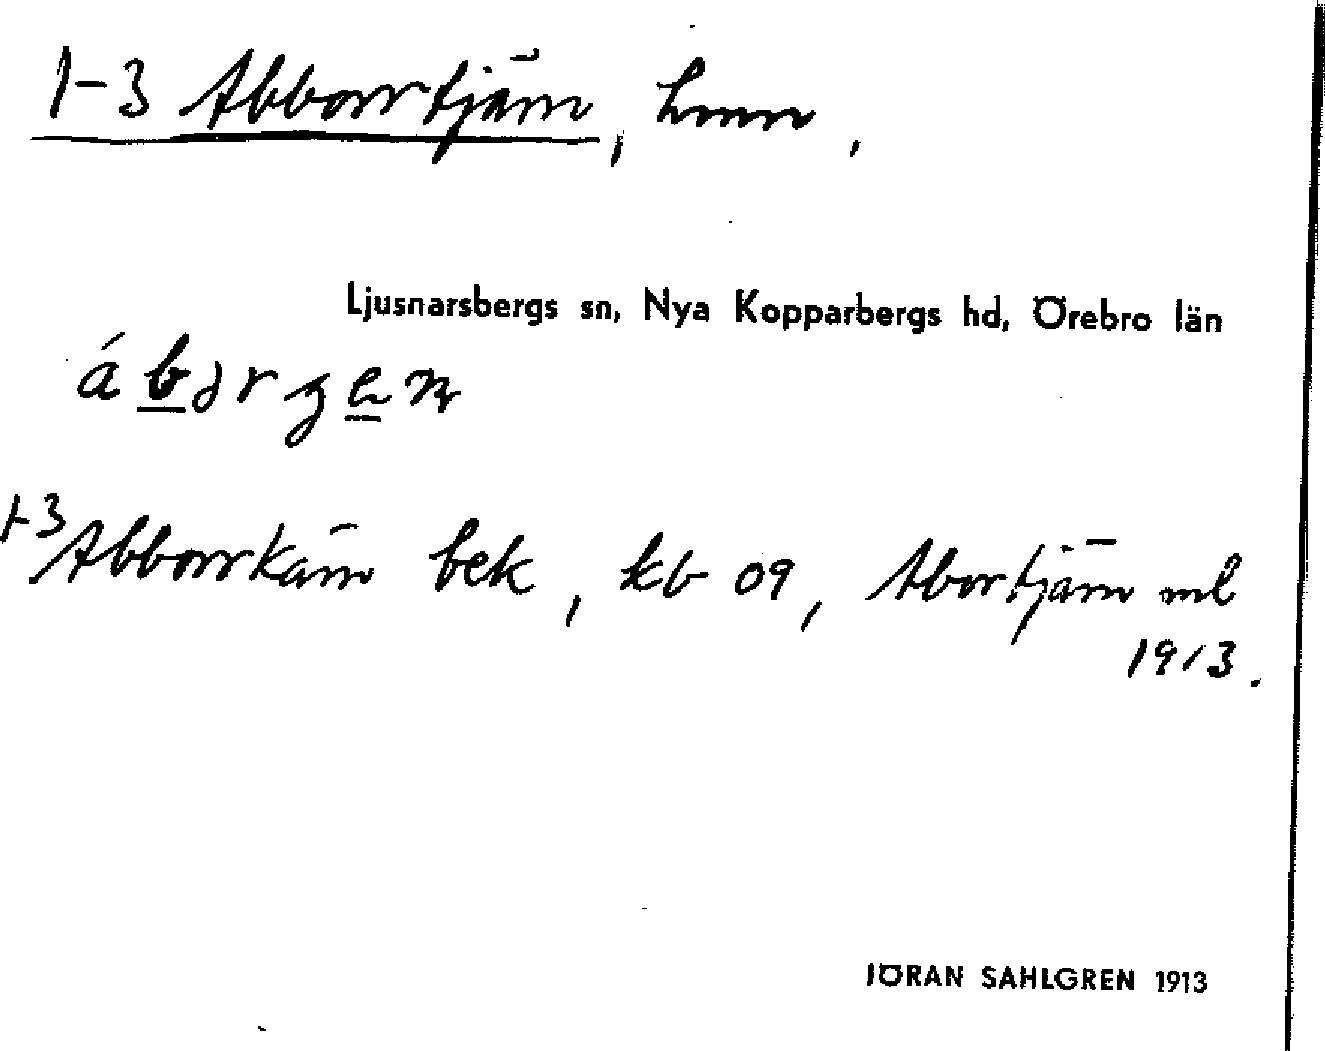 1-3 Abborrtjärn,
Ljusnarsbergs sn, Nya Kopparbergs hd, Örebro län
1-3 Abborrkärn bek, kb 09, Abortjärn ml
1913.
JÖRAN SAHLGREN 1913